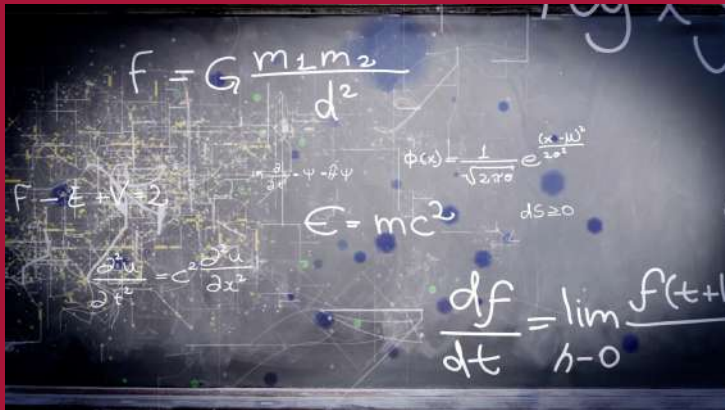 F = G m₁m₂ / d²
φ(x) = 1 / √2πσ e (x-μ)² / 2σ²
F - E + V = 2
E = mc²
dS ≥ 0
∂²u / ∂t² = c² ∂²u / ∂x²
df / dt = lim h-0 f(t+